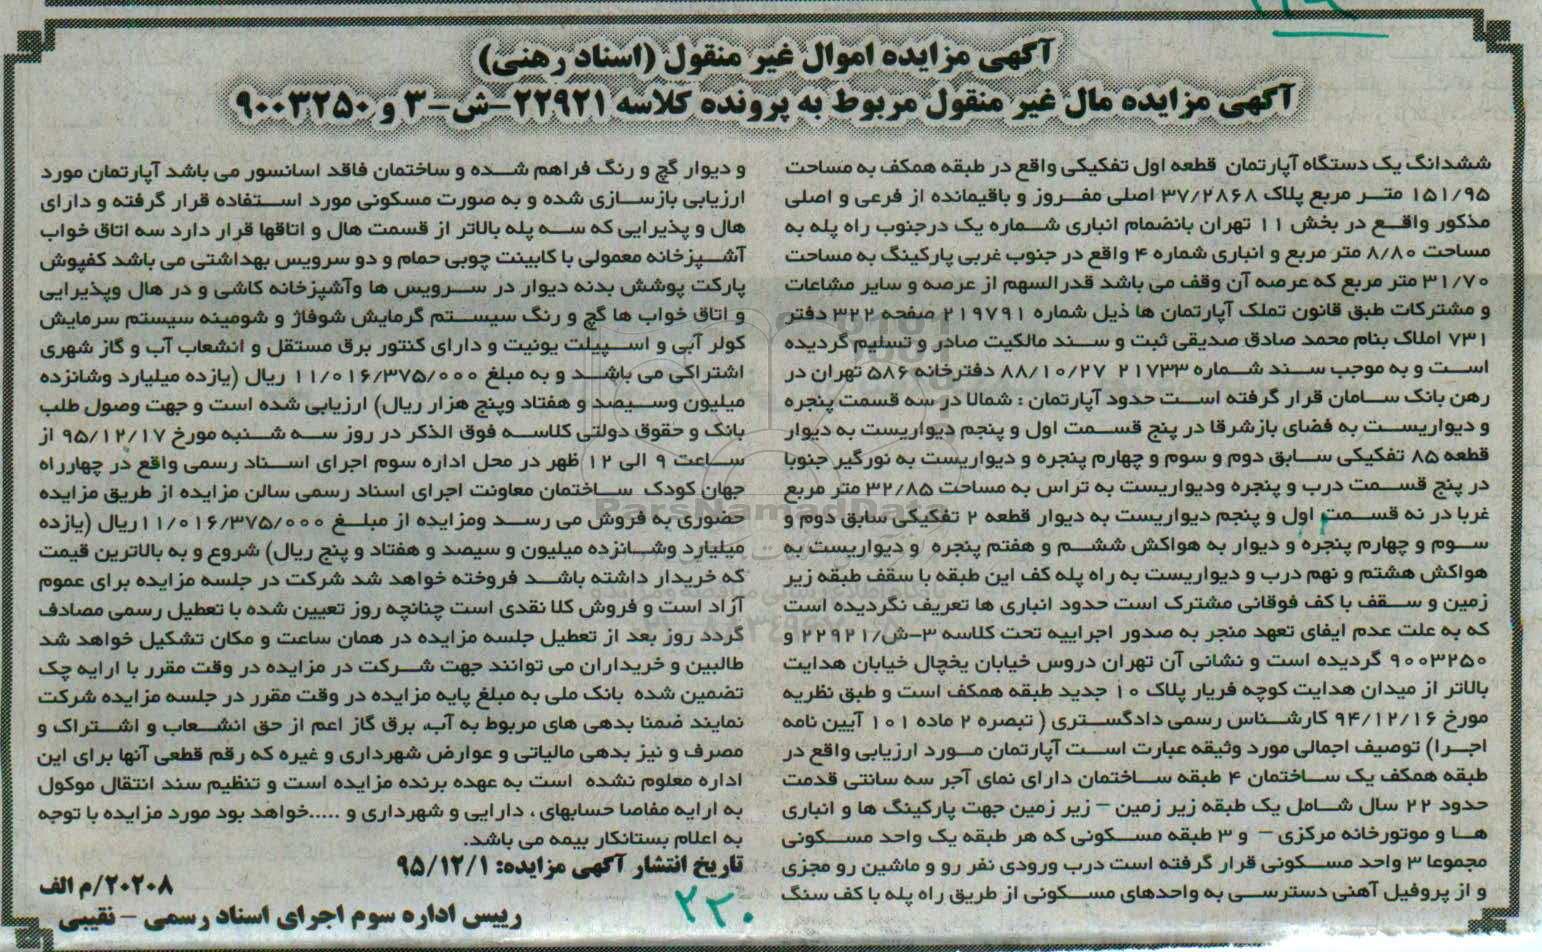 آگهی مزایده اموال غیر منقول (اسناد رهنی)
آگهی مزایده مال غیر منقول مربوط به پرونده کلاسه ۲۲۹۲۱-ش-۳ و ۹۰۰۳۲۵۰
ششدانگ یک دستگاه آپارتمان قطعه اول تفکیکی واقع در طبقه همکف به مساحت
۱۵۱/۹۵ متر مربع پلاک ۳۷/۲۸۶۸ اصلی مفروز و باقیمانده از فرعی و اصلی
مذکور واقع در بخش ۱۱ تهران بانضمام انباری شماره یک درجنوب راه پله به
مساحت ۸/۸۰ متر مربع و انباری شماره ۴ واقع در جنوب غربی پارکینگ به مساحت
۳۱/۷۰ متر مربع که عرصه آن وقف می باشد قدرالسهم از عرصه و سایر مشاعات
و مشترکات طبق قانون تملک آپارتمان ها ذیل شماره ۲۱۹۷۹۱ صفحه ۳۲۲ دفتر
۷۳۱ املاک بنام محمد صادق صدیقی ثبت و سند مالکیت صادر و تسلیم گردیده
است و به موجب سند شماره ۲۱۷۳۳ ۸۸/۱۰/۲۷ دفترخانه ۵۸۶ تهران در
رهن بانک سامان قرار گرفته است حدود آپارتمان : شمالا در سه قسمت پنجره
و دیواریست به فضای بازشرقا در پنج قسمت اول و پنجم دیواریست به دیوار
قطعه ۸۵ تفکیکی سابق دوم و سوم و چهارم پنجره و دیواریست به نورگیر جنوبا
در پنج قسمت درب و پنجره ودیواریست به تراس به مساحت ۳۲/۸۵ متر مربع
غربا در نه قسمت اول و پنجم دیواریست به دیوار قطعه ۲ تفکیکی سابق دوم و
سوم و چهارم پنجره و دیوار به هواکش ششم و هفتم پنجره و دیواریست به
هواکش هشتم و نهم درب و دیواریست به راه پله کف این طبقه با سقف طبقه زیر
زمین و سقف با کف فوقانی مشترک است حدود انباری ها تعریف نگردیده است
که به علت عدم ایفای تعهد منجر به صدور اجراییه تحت کلاسه ۳-ش/۲۲۹۲۱ و
۹۰۰۳۲۵۰ گردیده است و نشانی آن تهران دروس خیابان یخچال خیابان هدایت
بالاتر از میدان هدایت کوچه فریار پلاک ۱۰ جدید طبقه همکف است و طبق نظریه
مورخ ۹۴/۱۲/۱۶ کارشناس رسمی دادگستری ( تبصره ۲ ماده ۱۰۱ آیین نامه
اجرا) توصیف اجمالی مورد وثیقه عبارت است آپارتمان مورد ارزیابی واقع در
طبقه همکف یک ساختمان ۴ طبقه ساختمان دارای نمای آجر سه سانتی قدمت
حدود ۲۲ سال شامل یک طبقه زیر زمین - زیر زمین جهت پارکینگ ها و انباری
ها و موتورخانه مرکزی - و ۳ طبقه مسکونی که هر طبقه یک واحد مسکونی
مجموعا ۳ واحد مسکونی قرار گرفته است درب ورودی نفر رو و ماشین رو مجزی
و از پروفیل آهنی دسترسی به واحدهای مسکونی از طریق راه پله با کف سنگ
و دیوار گچ و رنگ فراهم شده و ساختمان فاقد اسانسور می باشد آپارتمان مورد
ارزیابی بازسازی شده و به صورت مسکونی مورد استفاده قرار گرفته و دارای
هال و پذیرایی که سه پله بالاتر از قسمت هال و اتاقها قرار دارد سه اتاق خواب
آشپزخانه معمولی با کابینت چوبی حمام و دو سرویس بهداشتی می باشد کفپوش
پارکت پوشش بدنه دیوار در سرویس ها وآشپزخانه کاشی و در هال وپذیرایی
و اتاق خواب ها گچ و رنگ سیستم گرمایش شوفاژ و شومینه سیستم سرمایش
کولر آبی و اسپیلت یونیت و دارای کنتور برق مستقل و انشعاب آب و گاز شهری
اشتراکی می باشد و به مبلغ ۱۱/۰۱۶/۳۷۵/۰۰۰ ریال (یازده میلیارد وشانزده
میلیون وسیصد و هفتاد وپنج هزار ریال) ارزیابی شده است و جهت وصول طلب
بانک و حقوق دولتی کلاسه فوق الذکر در روز سه شنبه مورخ ۹۵/۱۲/۱۷ از
ساعت ۹ الی ۱۲ ظهر در محل اداره سوم اجرای اسناد رسمی واقع در چهارراه
جهان کودک ساختمان معاونت اجرای اسناد رسمی سالن مزایده از طریق مزایده
حضوری به فروش می رسد ومزایده از مبلغ ۱۱/۰۱۶/۳۷۵/۰۰۰ریال (یازده
میلیارد وشانزده میلیون و سیصد و هفتاد و پنج ریال) شروع و به بالاترین قیمت
که خریدار داشته باشد فروخته خواهد شد شرکت در جلسه مزایده برای عموم
آزاد است و فروش کلا نقدی است چنانچه روز تعیین شده با تعطیل رسمی مصادف
گردد روز بعد از تعطیل جلسه مزایده در همان ساعت و مکان تشکیل خواهد شد
طالبین و خریداران می توانند جهت شرکت در مزایده در وقت مقرر با ارایه چک
تضمین شده بانک ملی به مبلغ پایه مزایده در وقت مقرر در جلسه مزایده شرکت
نمایند ضمنا بدهی های مربوط به آب، برق گاز اعم از حق انشعاب و اشتراک و
مصرف و نیز بدهی مالیاتی و عوارض شهرداری و غیره که رقم قطعی آنها برای این
اداره معلوم نشده است به عهده برنده مزایده است و تنظیم سند انتقال موکول
به ارایه مفاصا حسابهای ، دارایی و شهرداری و .....خواهد بود مورد مزایده با توجه
به اعلام بستانکار بیمه می باشد.
تاریخ انتشار آگهی مزایده: ۹۵/۱۲/۱
۲۰۲۰۸/م الف
رییس اداره سوم اجرای اسناد رسمی - نقیبی
۲۳۰
ParsNamadData